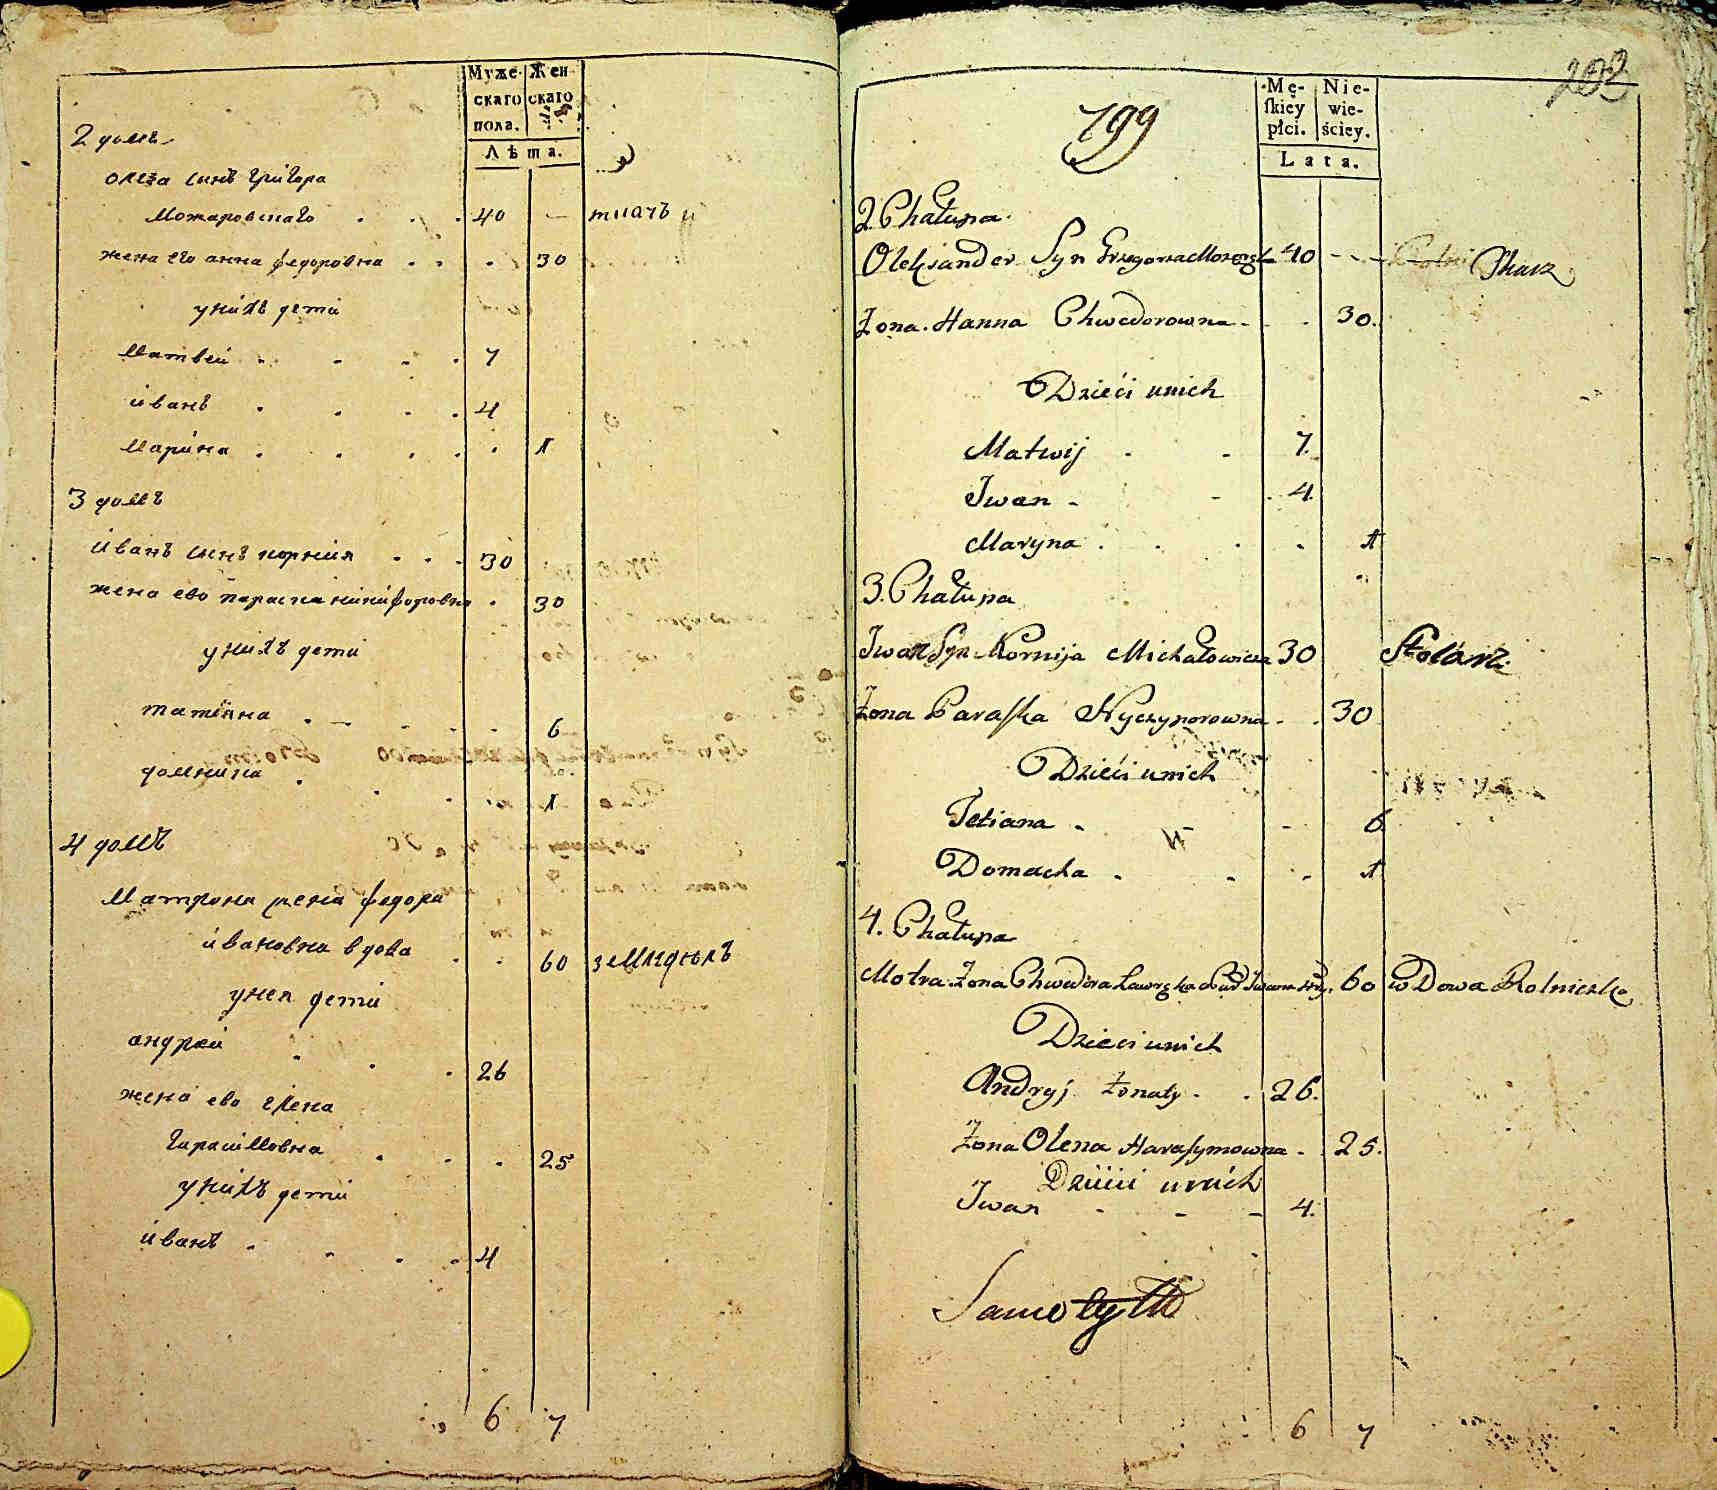 Муже-
скаго
пола.
Жен
скаго
Лѣта.
2 домъ
олеѯа синъ григора
можаровскаго . . . 40 — ткачъ
жена его анна федоровна . . . 30
унихъ дети
матвей . . . . 7
иванъ . . . . 4
марина . . . . . 1
3 домъ
иванъ синъ корния . . . 30
жена ево параска никифоровна . 30
унихъ дети
татияна . . . . 6
домника . . . 1
4 домъ
матрона жена федора
ивановна вдова . . 60
унея дети
андрей . . . 26
жена ево елена
гарасимовна . . . 25
унихъ дети
иванъ . . . . 4
6 7
203
799
Mę-
skiey
płci.
Nie-
wie-
ściey.
Lata.
2. Chałupa.
Olexsander Syn Grzegorza 40 - - - Tkacz
Żona. Hanna Chwedorowna - . . 30.
Dzieci unich
Matwij . - 7.
Iwan - - . 4.
Maryna . . . . 1
3. Chałupa
Iwan Syn Kornija Michałowicza 30 Stolarz
Żona Paraska Nyczyporowna - . 30
Dzieci unich
Tetiana - - 6
Domacha . - . 1
4. Chałupa
Motra Żona Chwedora 60 wDowa Rolniczka
Dzieci unich
Andryj Żonaty - . 26.
Żona Olena Harasymowna - . 25.
Dzieci unich
Iwan - - - 4.
6 7